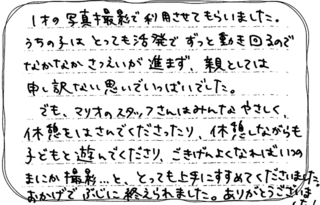 1才の写真撮影で利用させてもらいました。
うちの子は とっても活発で ずっと動き回るので
なかなか さつえいが 進まず、親としては
申し訳ない思いでいっぱいでした。
でも、マリオのスタッフさんはみんな やさしく、
休憩をはさんでくださったり、休憩しながらも
子どもと遊んでくださり、ごきげんよくなればいつの
まにか撮影…と、とっても上手にすすめてくださいました。
おかげで ぶじに 終えられました。ありがとうございま
した!